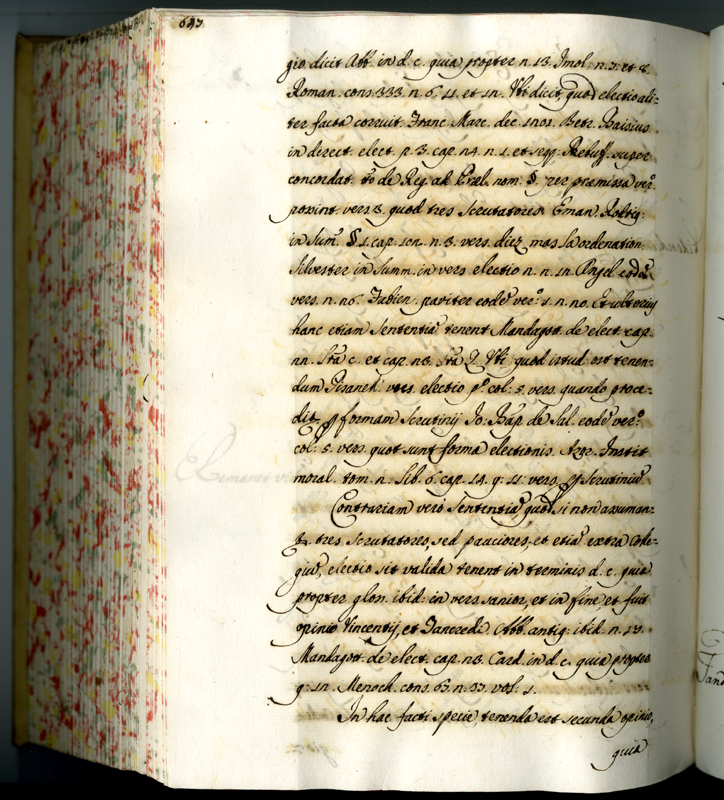 647
gio dicit Abb. in d. c. quia propter n. 13. Imol. n. 7. et 8.
Roman. cons. 333. n. 6. 11. et 12. Ubi dicit, quod electio ali-
ter facta corruit. Franc. Marc. dec. 1201. Petr.
in direct. elect. p. 3. cap. 24. n. 1. et seqq. Rebuff. super
concordat. de Reg. ad Prael. nom. §. per praemissa ver.
vers. 3. quod tres Scrutatores Eman. Rodrig.
in Sum. §. 1. cap. n. 3. vers. diez mas la ordenation.
Silvester in Summ. in vers. electio 2. n. 12. Angel. eod.
vers. n. 26. Fabien. pariter eode ver. 1. n. 20. Et
hanc etiam Sententia tenent Mandagot. de elect. cap.
22. c. et cap. 23. Ubi, quod istud est tenen-
dum electio p. col. 5. vers. quando proce-
dit. p formam Scrutinij Io. Bap. de Sal. eode ver.
col. 5. vers. quot sunt forma electionis. Azor. Instit
moral. tom. 2. Lib. 6. cap. 14. q. 11. vers. p Scrutiniu.
Contrariam vero Sententia, quod si non assuman-
tur tres Scrutatores, sed pauciores, et etia extra Colle-
giu, electio sit valida tenent in terminis d. c. quia
propter glos. ibid. in vers. sanior, et in fine, et fuit
opinio Vincentij, et Tancredi. Abb. antiq. ibid. n. 13.
Mandagot. de elect. cap. 23. Card. in d. c. quia propter
q. 12. Menoch. cons. 63. n. 37. vol. 1.
In hac facti specie, tenenda est secunda opinio,
quia